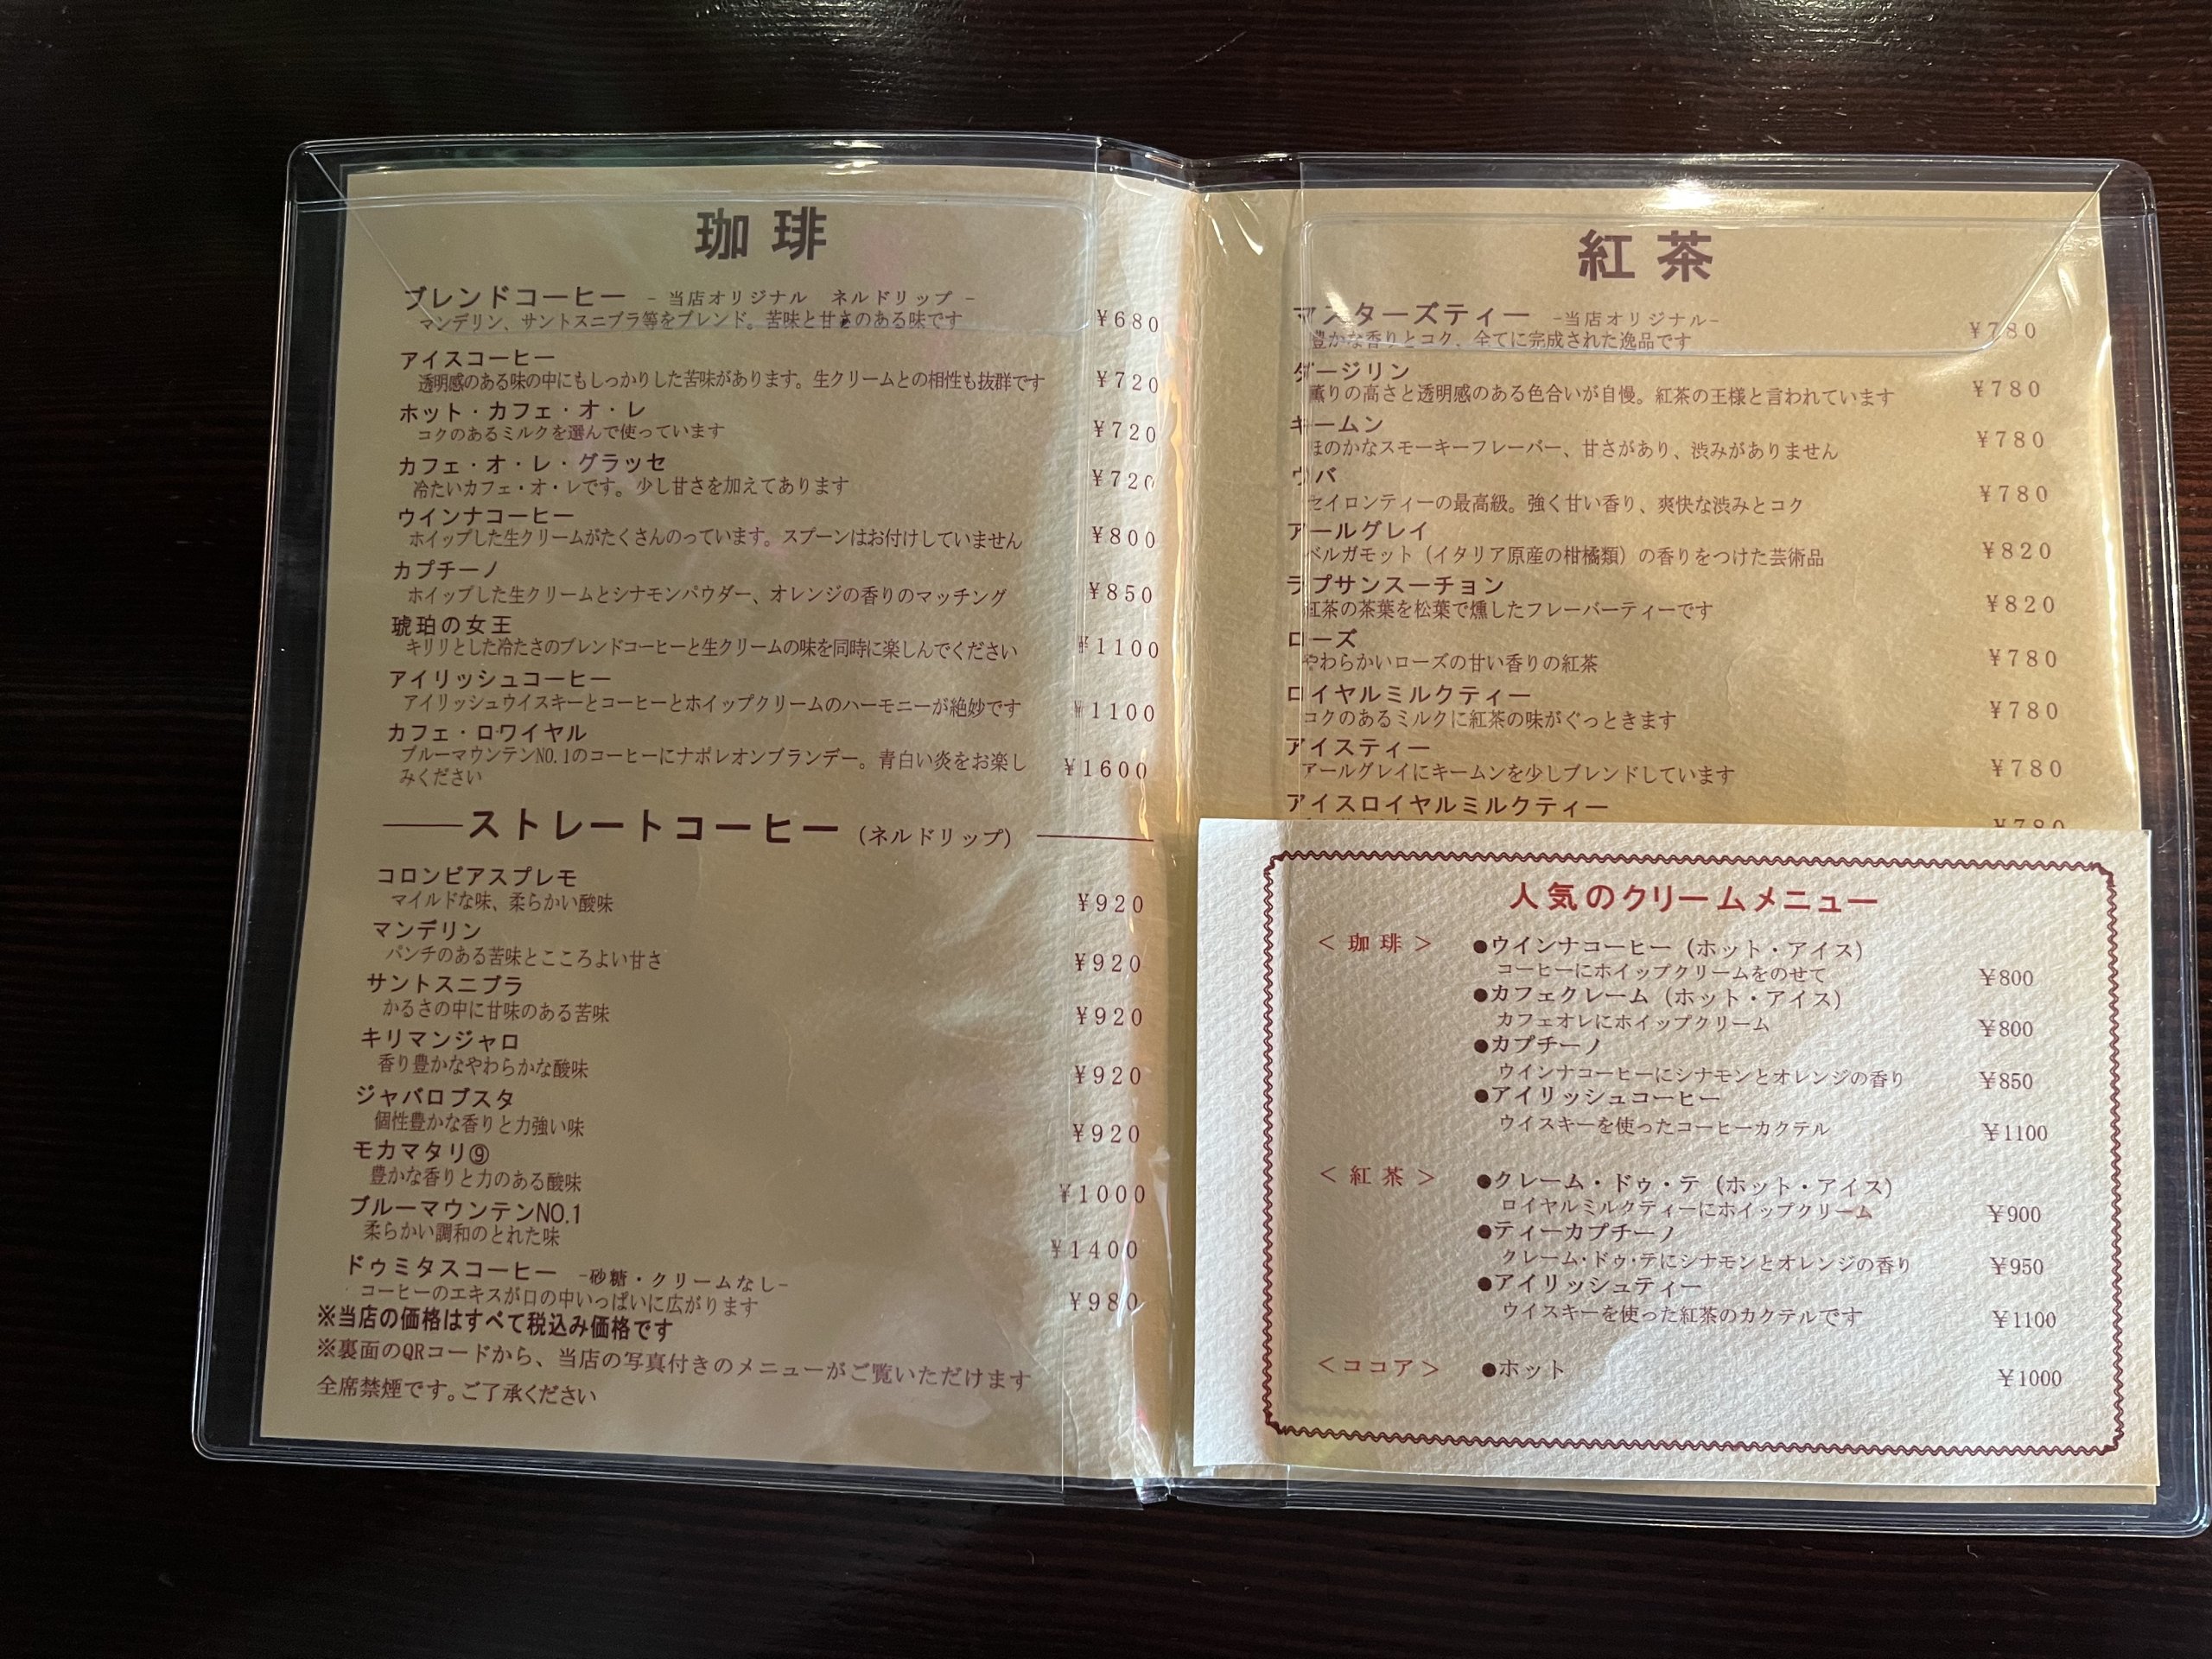 珈琲
ブレンドコーヒー －当店オリジナル　ネルドリップ－
マンデリン、サントスニブラ等をブレンド。苦味と甘さのある味です ¥680
アイスコーヒー
透明感のある味の中にもしっかりした苦味があります。生クリームとの相性も抜群です ¥720
ホット・カフェ・オ・レ
コクのあるミルクを選んで使っています ¥720
カフェ・オ・レ・グラッセ
冷たいカフェ・オ・レです。少し甘さを加えてあります ¥720
ウインナコーヒー
ホイップした生クリームがたくさんのっています。スプーンはお付けしていません ¥800
カプチーノ
ホイップした生クリームとシナモンパウダー、オレンジの香りのマッチング ¥850
琥珀の女王
キリリとした冷たさのブレンドコーヒーと生クリームの味を同時に楽しんでください ¥1100
アイリッシュコーヒー
アイリッシュウイスキーとコーヒーとホイップクリームのハーモニーが絶妙です ¥1100
カフェ・ロワイヤル
ブルーマウンテンNO.1のコーヒーにナポレオンブランデー。青白い炎をお楽し
みください ¥1600
ストレートコーヒー（ネルドリップ）
コロンビアスプレモ
マイルドな味、柔らかい酸味 ¥920
マンデリン
パンチのある苦味とこころよい甘さ ¥920
サントスニブラ
かるさの中に甘味のある苦味 ¥920
キリマンジャロ
香り豊かなやわらかな酸味 ¥920
ジャバロブスタ
個性豊かな香りと力強い味 ¥920
モカマタリ⑨
豊かな香りと力のある酸味 ¥1000
ブルーマウンテンNO.1
柔らかい調和のとれた味 ¥1400
ドゥミタスコーヒー －砂糖・クリームなし－
コーヒーのエキスが口の中いっぱいに広がります ¥980
※当店の価格はすべて税込み価格です
※裏面のQRコードから、当店の写真付きのメニューがご覧いただけます
全席禁煙です。ご了承ください
紅茶
マスターズティー －当店オリジナル－
豊かな香りとコク、全てに完成された逸品です ¥780
ダージリン
薫りの高さと透明感のある色合いが自慢。紅茶の王様と言われています ¥780
キームン
ほのかなスモーキーフレーバー、甘さがあり、渋みがありません ¥780
ウバ
セイロンティーの最高級。強く甘い香り、爽快な渋みとコク ¥780
アールグレイ
ベルガモット（イタリア原産の柑橘類）の香りをつけた芸術品 ¥820
ラプサンスーチョン
紅茶の茶葉を松葉で燻したフレーバーティーです ¥820
ローズ
やわらかいローズの甘い香りの紅茶 ¥780
ロイヤルミルクティー
コクのあるミルクに紅茶の味がぐっときます ¥780
アイスティー
アールグレイにキームンを少しブレンドしています ¥780
アイスロイヤルミルクティー
¥780
人気のクリームメニュー
＜珈琲＞ ●ウインナコーヒー（ホット・アイス）
コーヒーにホイップクリームをのせて ¥800
●カフェクレーム（ホット・アイス）
カフェオレにホイップクリーム ¥800
●カプチーノ
ウインナコーヒーにシナモンとオレンジの香り ¥850
●アイリッシュコーヒー
ウイスキーを使ったコーヒーカクテル ¥1100
＜紅茶＞ ●クレーム・ドゥ・テ（ホット・アイス）
ロイヤルミルクティーにホイップクリーム ¥900
●ティーカプチーノ
クレーム・ドゥ・テにシナモンとオレンジの香り ¥950
●アイリッシュティー
ウイスキーを使った紅茶のカクテルです ¥1100
＜ココア＞ ●ホット ¥1000